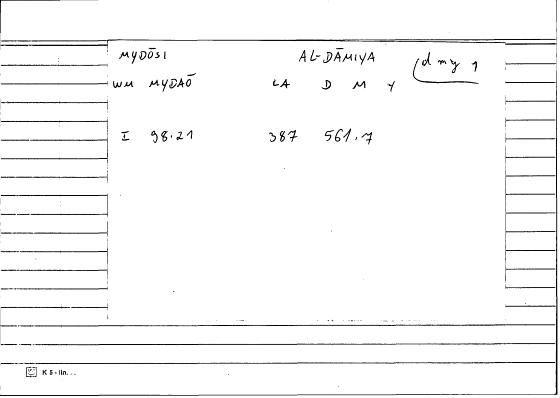 MYDŌSI AL-DĀMIYA (d my 1
WM MYDAŌ LA D M Y
I 98.21 387 561.7
K 5 - lin...